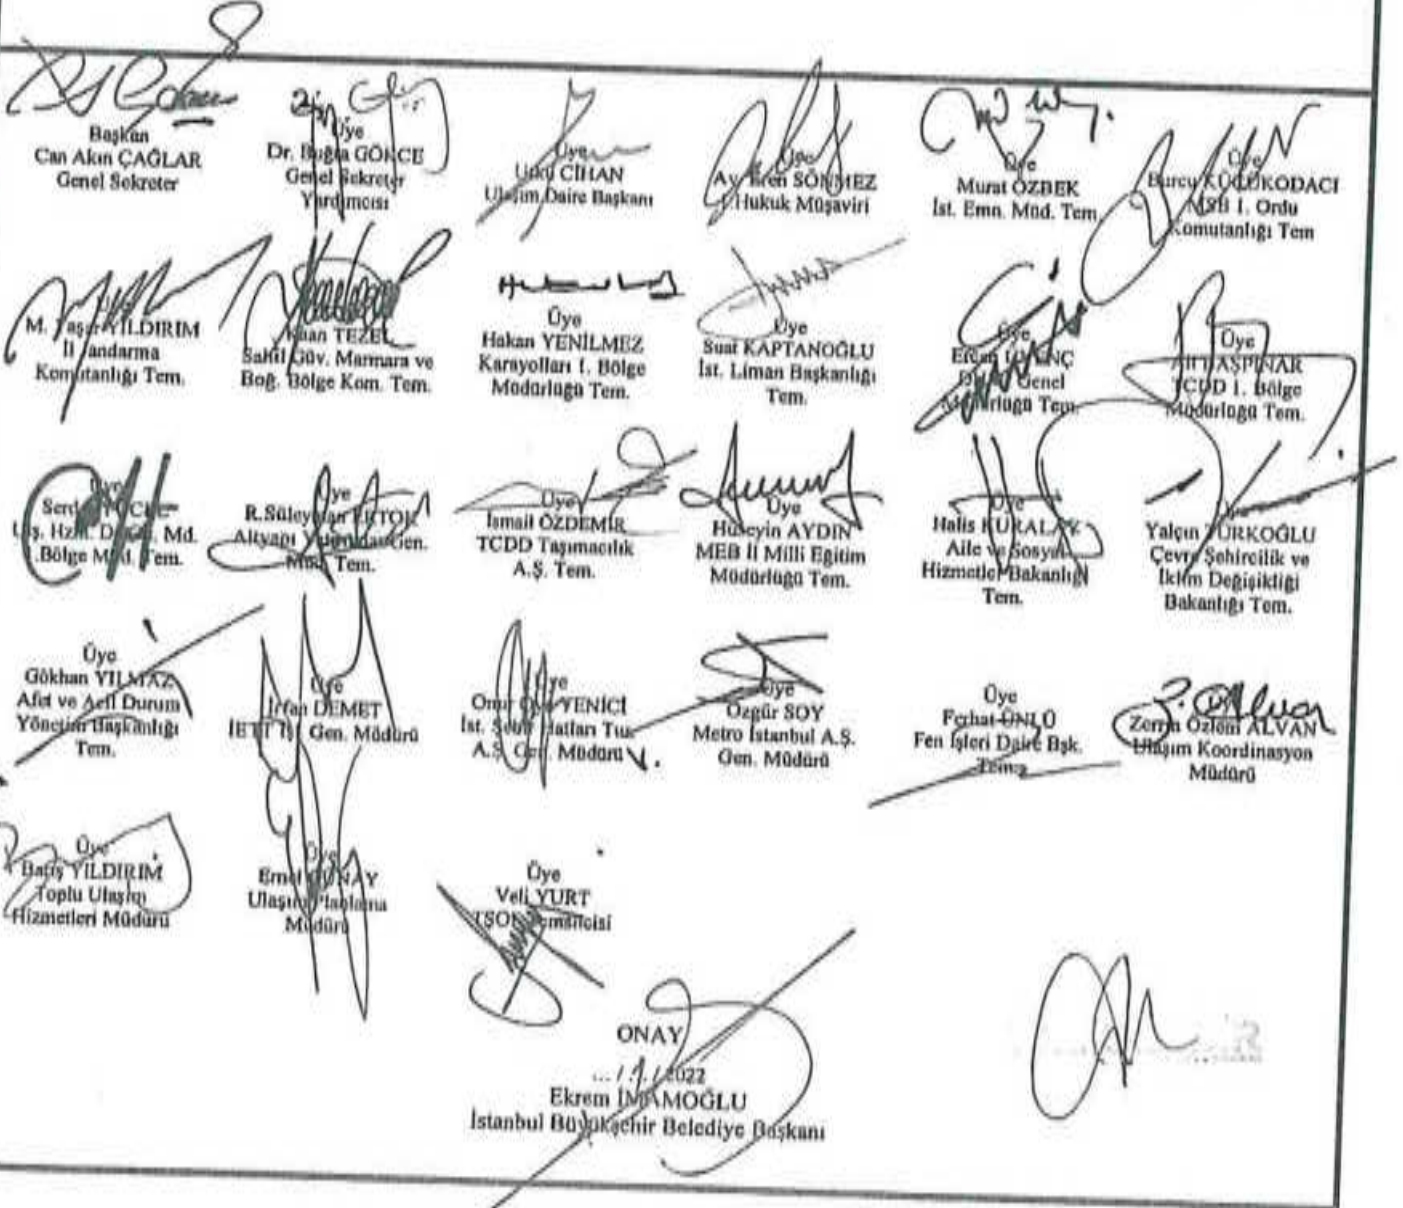 Başkan
Can Akın ÇAĞLAR
Genel Sekreter
Üye
Dr. Buğra GÖKCE
Genel Sekreter
Yardımcısı
Üye
Utku CİHAN
Ulaşım Daire Başkanı
Üye
Av. Eren SÖNMEZ
1.Hukuk Müşaviri
Üye
Murat ÖZBEK
İst. Emn. Müd. Tem.
Üye
Burcu KÜÇÜKODACI
MSB 1. Ordu
Komutanlığı Tem
M. Yaşar YILDIRIM
İl Jandarma
Komutanlığı Tem.
Kaan TEZEL
Sahil Güv. Marmara ve
Boğ. Bölge Kom. Tem.
Üye
Hakan YENİLMEZ
Karayolları 1. Bölge
Müdürlüğü Tem.
Üye
Suat KAPTANOĞLU
İst. Liman Başkanlığı
Tem.
Üye
Genel
Müdürlüğü Tem.
Üye
Ali TAŞPINAR
TCDD 1. Bölge
Müdürlüğü Tem.
Üye
Md.
Bölge Müd. Tem.
Üye
R.Süleyman ERTOK
Altyapı Yatırımları Gen.
Müd. Tem.
Üye
İsmail ÖZDEMİR
TCDD Taşımacılık
A.Ş. Tem.
Üye
Hüseyin AYDIN
MEB İl Milli Eğitim
Müdürlüğü Tem.
Üye
Halis KURALAY
Aile ve Sosyal
Hizmetler Bakanlığı
Tem.
Yalçın YÜRKOĞLU
Çevre Şehircilik ve
İklim Değişikliği
Bakanlığı Tem.
Üye
Gökhan YILMAZ
Afet ve Acil Durum
Yönetim Başkanlığı
Tem.
Üye
İrfan DEMET
İETT İşl. Gen. Müdürü
Üye
YENİCİ
İst. Şehir Hatları Tur.
A.Ş. Gen. Müdürü V.
Üye
Özgür SOY
Metro İstanbul A.Ş.
Gen. Müdürü
Üye
Ferhat ÜNLÜ
Fen İşleri Daire Bşk.
Tem.
Zerrin Özlem ALVAN
Ulaşım Koordinasyon
Müdürü
Üye
Barış YILDIRIM
Toplu Ulaşım
Hizmetleri Müdürü
Üye
Emel GÜNAY
Ulaşım Planlama
Müdürü
Üye
Veli YURT
TŞOF Temsilcisi
ONAY
2022
Ekrem İMAMOĞLU
İstanbul Büyükşehir Belediye Başkanı